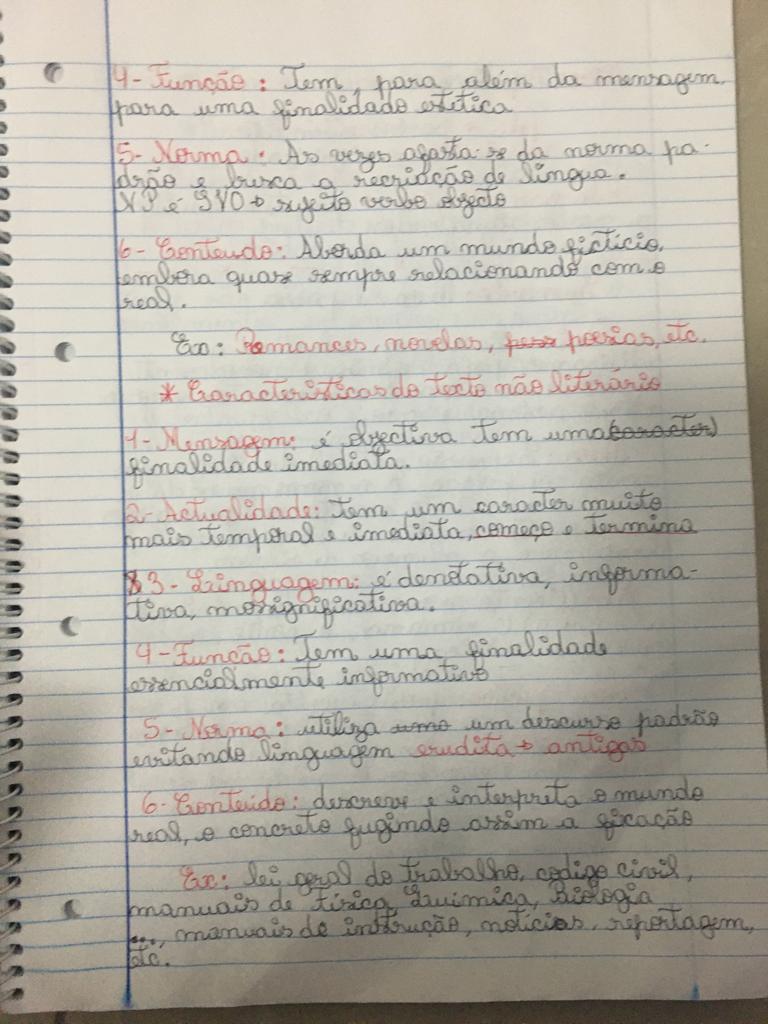 4- Função: Tem, para além da mensagem,
para uma finalidade estética
5- Norma: As vezes afasta-se da norma pa-
drão e busca a recriação de língua.
NP é SVO→ sujeito verbo objecto
6- Conteudo: Aborda um mundo fictício,
embora quase sempre relacionando com o
real.
Ex: Romances, novelas, poesias, etc.
* Caracteristicas do texto não literário
1- Mensagem: é objectiva tem uma
finalidade imediata.
2- Actualidade: Tem um caracter muito
mais temporal e imediata, começo e termina
3- Linguagem: é denotativa, informa-
tiva, monsignificativa.
4- Função: Tem uma finalidade
essencialmente informativo
5- Norma: utiliza um descurso padrão
evitando linguagem erudita→ antigas
6- Conteúdo: descreve e interpreta o mundo
real, o concreto fugindo assim a ficação
Ex: lei geral do trabalho, codigo civil,
manuais de Física, Química, Biologia
..., manuais de instrução, notícias, reportagem,
etc.